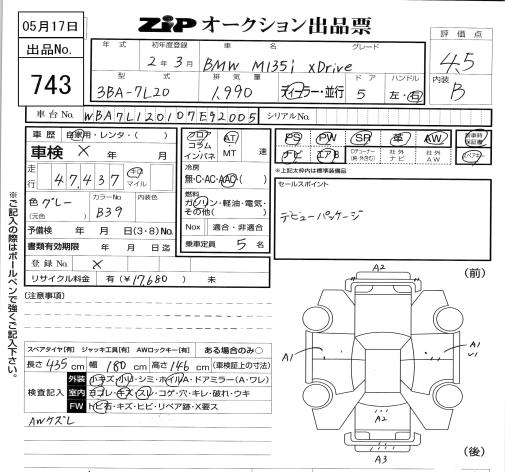 05月17日
ZIP オークション出品票
出品No.
743
年式 初年度登録 車名 グレード
2年3月 BMW M135i xDrive
型式 排気量 ドア ハンドル
3BA-7L20 1,990 ディーラー・並行 5 左・右
評価点
4.5
内装
B
車台No. WBA7L120107E92005 シリアルNo.
車歴 自家用・レンタ・( )
車検 × 年 月
走行 47,437 キロ マイル
色 グレー (元色) カラーNo. B39 内装色
予備検 年 月 日(3・8)No.
書類有効期限 年 月 日迄
登録No. ×
リサイクル料金 有(¥17,680) 未
フロア コラム インパネ AT MT 速
冷房
無・C・AC・AAC・( )
燃料
ガソリン・軽油・電気・その他( )
Nox 適合・非適合
乗車定員 5名
PS PW SR 革 AW 新車時保証書
ナビ エアB 社外ナビ 社外AW
*上記太枠内は標準装備品
セールスポイント
デビューパッケージ
※ご記入の際はボールペンで強くご記入下さい。
[注意事項]
スペアタイヤ[有] ジャッキ工具[有] AWロックキー[有] ある場合のみ○
長さ 435cm 幅 180cm 高さ 146cm (車検証上の寸法)
検査記入
外装 小キズ・小U・シミ・ホイルA・ドアミラー(A・ワレ)
室内 ヨゴレ・キズ・スレ・コゲ・穴・キレ・破れ・ウキ
FW トビ石・キズ・ヒビ・リペア跡・X要ス
AWケズレ
(前)
A2
A1
A1
A2
A3
(後)